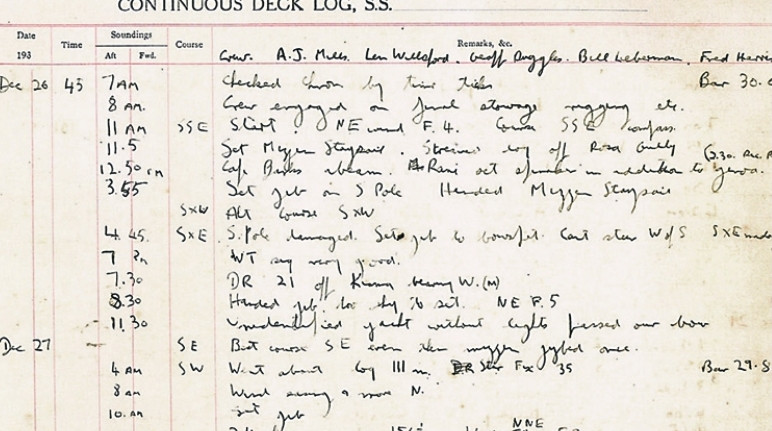 CONTINUOUS DECK LOG, S.S.
Date Time Soundings Course Remarks, &c.
193 Aft Fwd.
Crew. A.J. Mills. Len Willsford. Geoff Ruggles. Bill Lieberman. Fred Harris
Dec 26 45 7 AM Checked chron by time ticks Bar 30.
8 AM. Crew engaged on final stowage rigging etc.
11 AM SSE Start. NE wind F. 4. Course SSE compass.
11.5 Set Mizzen Staysail. Streamed log off
12.50 pm abeam. set spinnaker in addition to genoa.
3.55 Set jib on S Pole Handed Mizzen Staysail
SxW Alt Course SxW
4.45. SxE S. Pole damaged. Set jib to bowsprit. Cant steer W of S SxE
7 Pm WT sig very good.
7.30 DR 21 off bearing W. (M)
8.30 Handed jib. too shy to set. NE F. 5
11.30 Unidentified yacht without lights passed our bow
Dec 27 SE Best course SE even then mizzen gybed once.
4 AM SW Went about log 111 m. DR Star Fix 35 Bar 29.8
8 am Wind more N.
10. am Set jib
NNE